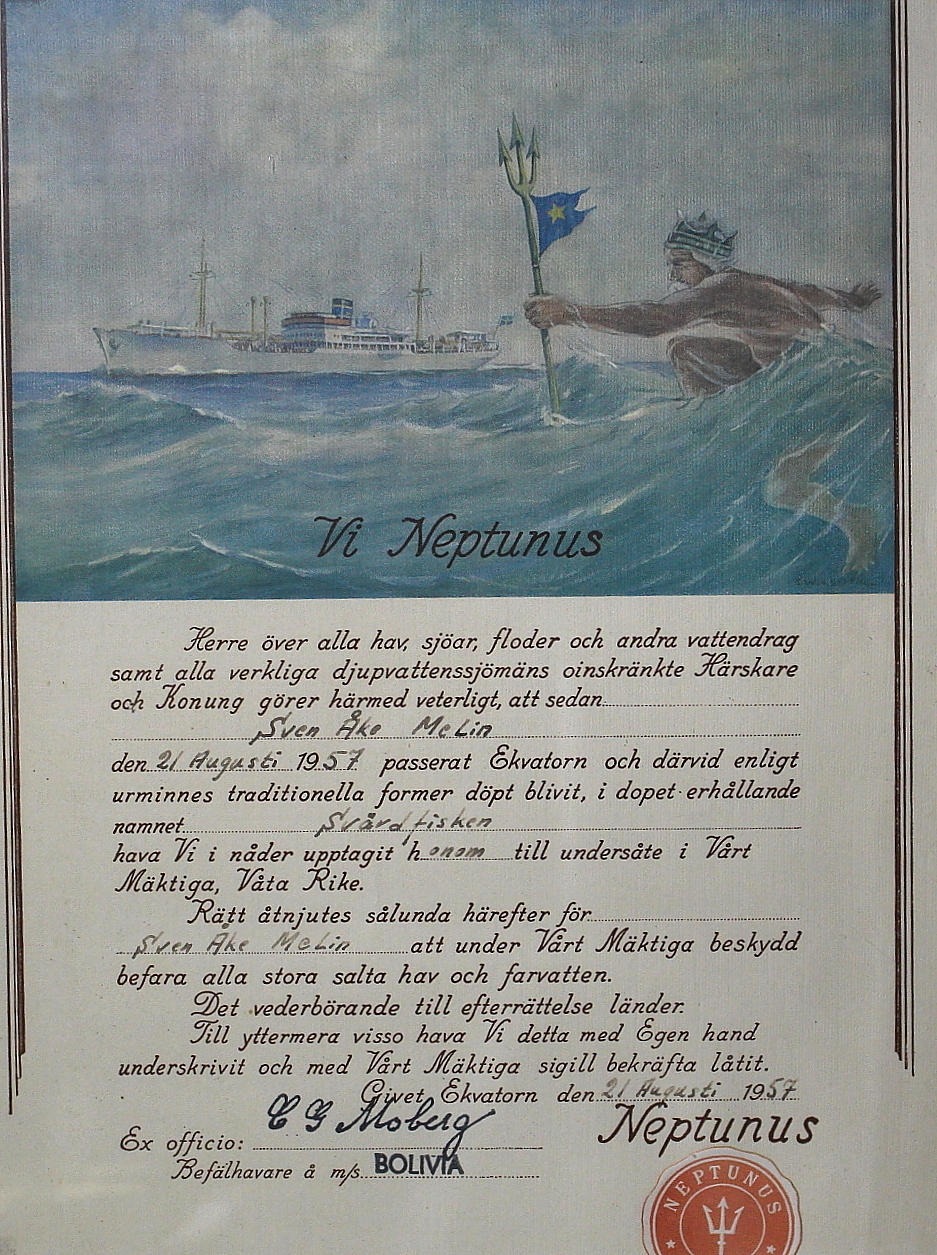 Vi Neptunus
Herre över alla hav, sjöar, floder och andra vattendrag
samt alla verkliga djupvattenssjömäns oinskränkte Härskare
och Konung görer härmed veterligt, att sedan
Sven Åke Melin
den 21 Augusti 1957 passerat Ekvatorn och därvid enligt
urminnes traditionella former döpt blivit, i dopet erhållande
namnet Svärdfisken
hava Vi i nåder upptagit honom till undersåte i Vårt
Mäktiga, Våta Rike.
Rätt åtnjutes sålunda härefter för
Sven Åke Melin att under Vårt Mäktiga beskydd
befara alla stora salta hav och farvatten.
Det vederbörande till efterrättelse länder.
Till yttermera visso hava Vi detta med Egen hand
underskrivit och med Vårt Mäktiga sigill bekräfta låtit.
Givet Ekvatorn den 21 Augusti 1957
C G Moberg
Neptunus
Ex officio:
Befälhavare å m/s BOLIVIA
NEPTUNUS